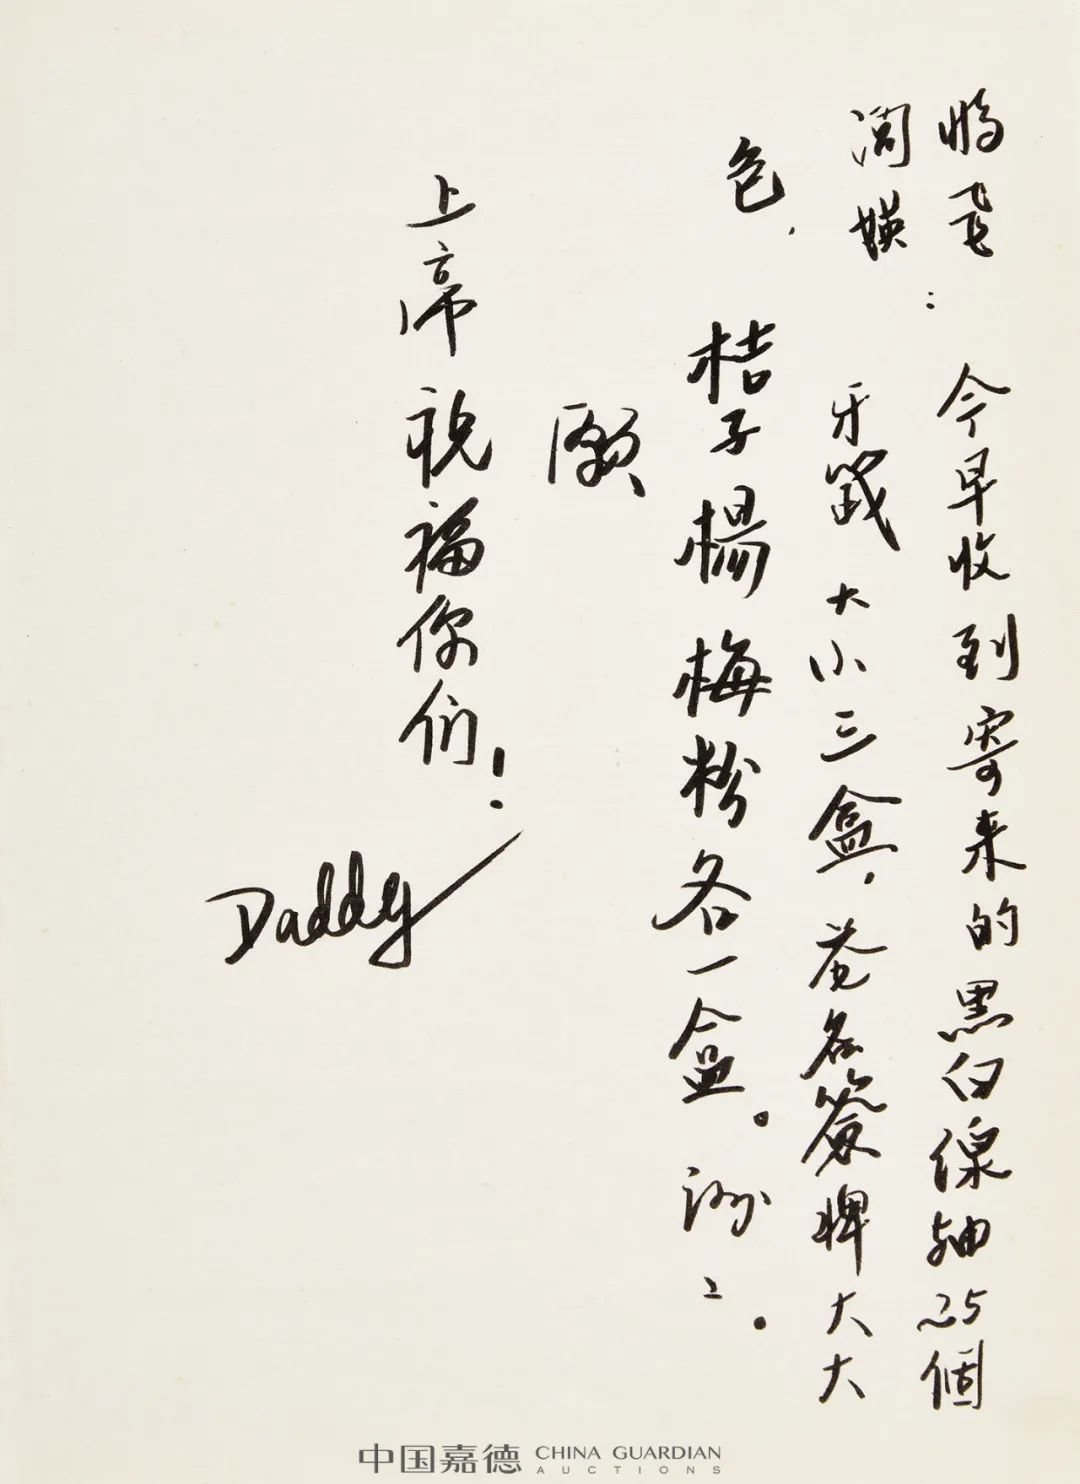 今早收到寄来的黑白線軸25個
牙籤大小三盒，名簽牌大大
色，桔子楊梅粉各一盒。謝〻。
願
上帝祝福你们！
Daddy
中国嘉德 CHINA GUARDIAN AUCTIONS